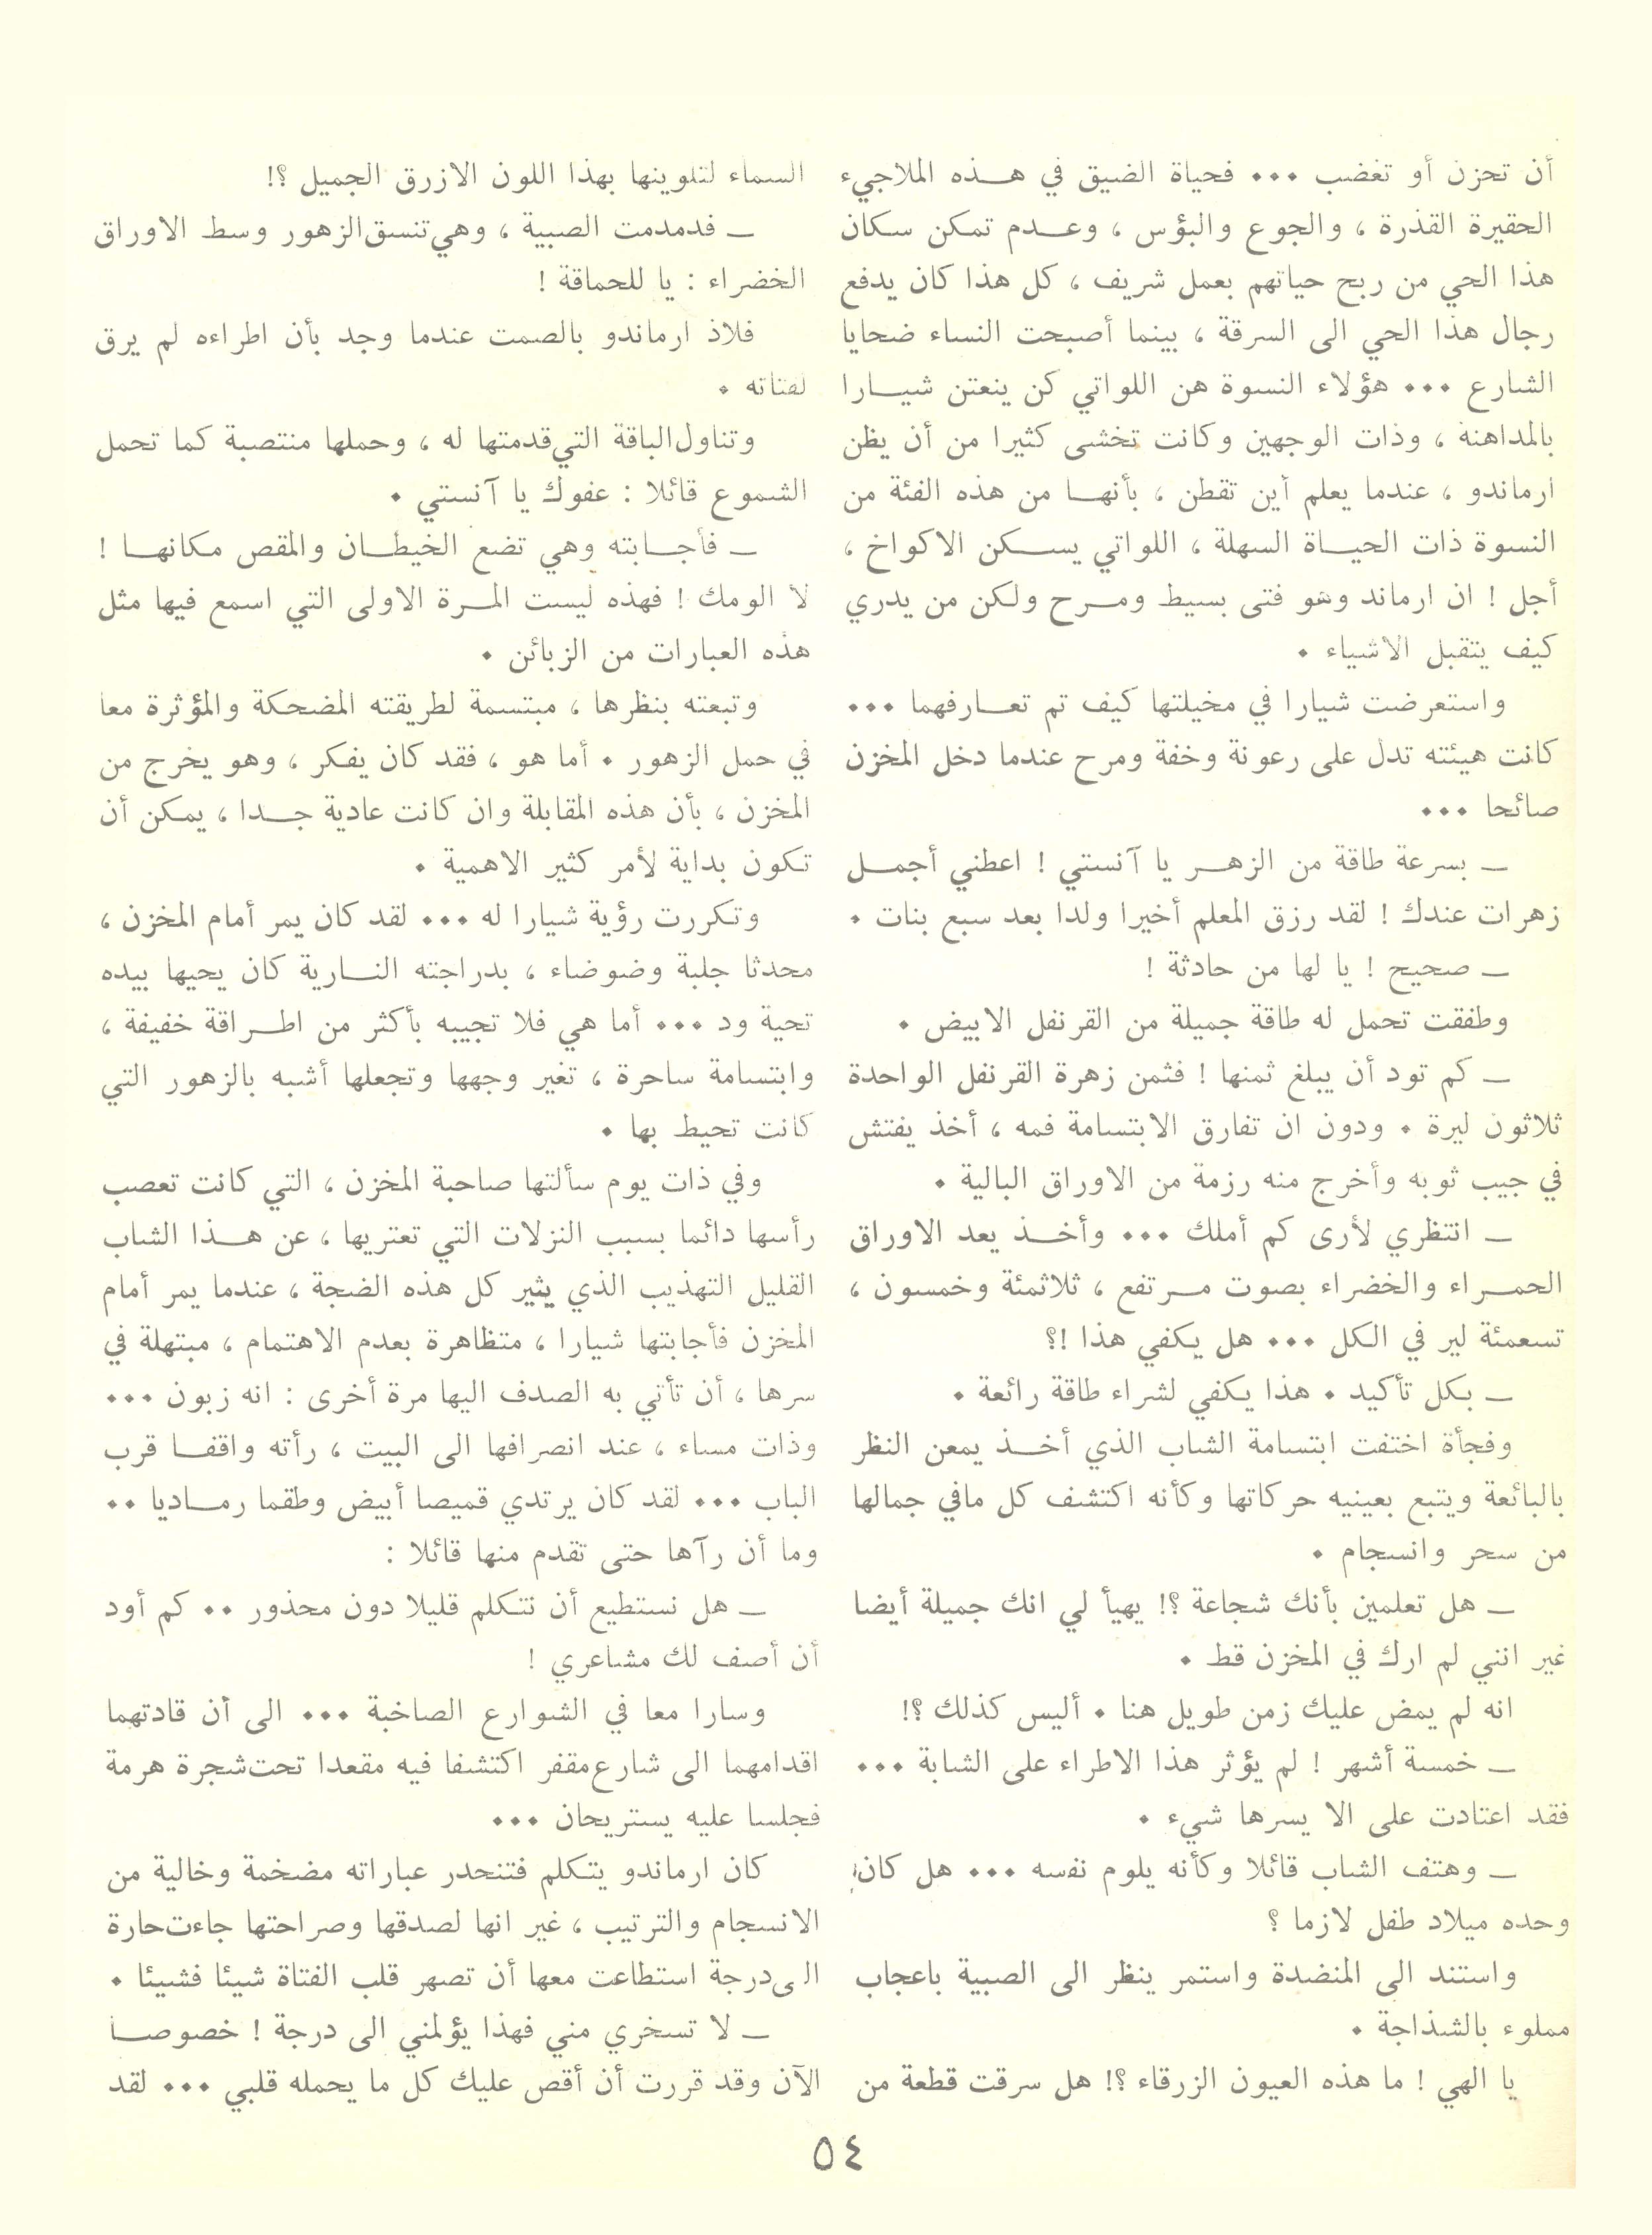 أن تحزن أو تغضب ... فحياة الضيق في هذه الملاجيء
الحقيرة القذرة ، والجوع والبؤس ، وعدم تمكن سكان
هذا الحي من ربح حياتهم بعمل شريف ، كل هذا كان يدفع
رجال هذا الحي الى السرقة ، بينما أصبحت النساء ضحايا
الشارع ... هؤلاء النسوة هن اللواتي كن ينعتن شيارا
بالمداهنة ، وذات الوجهين وكانت تخشى كثيرا من أن يظن
ارماندو ، عندما يعلم أين تقطن ، بأنها من هذه الفئة من
النسوة ذات الحياة السهلة ، اللواتي يسكن الاكواخ ،
أجل ! ان ارماند وهو فتى بسيط ومرح ولكن من يدري
كيف يتقبل الاشياء .
واستعرضت شيارا في مخيلتها كيف تم تعارفهما ...
كانت هيئته تدل على رعونة وخفة ومرح عندما دخل المخزن
صائحا ...
ـ بسرعة طاقة من الزهر يا آنستي ! اعطني أجمل
زهرات عندك ! لقد رزق المعلم أخيرا ولدا بعد سبع بنات .
ـ صحيح ! يا لها من حادثة !
وطفقت تحمل له طاقة جميلة من القرنفل الابيض .
ـ كم تود أن يبلغ ثمنها ! فثمن زهرة القرنفل الواحدة
ثلاثون ليرة . ودون ان تفارق الابتسامة فمه ، أخذ يفتش
في جيب ثوبه وأخرج منه رزمة من الاوراق البالية .
ـ انتظري لأرى كم أملك ... وأخذ يعد الاوراق
الحمراء والخضراء بصوت مرتفع ، ثلاثمئة وخمسون ،
تسعمئة لير في الكل ... هل يكفي هذا !؟
ـ بكل تأكيد . هذا يكفي لشراء طاقة رائعة .
وفجأة اختفت ابتسامة الشاب الذي أخذ يمعن النظر
بالبائعة ويتبع بعينيه حركاتها وكأنه اكتشف كل مافي جمالها
من سحر وانسجام .
ـ هل تعلمين بأنك شجاعة ؟! يهيأ لي انك جميلة أيضا
غير انني لم ارك في المخزن قط .
انه لم يمض عليك زمن طويل هنا . أليس كذلك ؟!
ـ خمسة أشهر ! لم يؤثر هذا الاطراء على الشابة ...
فقد اعتادت على الا يسرها شيء .
ـ وهتف الشاب قائلا وكأنه يلوم نفسه ... هل كان
وحده ميلاد طفل لازما ؟
واستند الى المنضدة واستمر ينظر الى الصبية باعجاب
مملوء بالشذاجة .
يا الهي ! ما هذه العيون الزرقاء ؟! هل سرقت قطعة من
السماء لتلوينها بهذا اللون الازرق الجميل ؟!
ـ فدمدمت الصبية ، وهي تنسق الزهور وسط الاوراق
الخضراء : يا للحماقة !
فلاذ ارماندو بالصمت عندما وجد بأن اطراءه لم يرق
لفتاته .
وتناول الباقة التي قدمتها له ، وحملها منتصبة كما تحمل
الشموع قائلا : عفوك يا آنستي .
ـ فأجابته وهي تضع الخيطان والمقص مكانها !
لا الومك ! فهذه ليست المرة الاولى التي اسمع فيها مثل
هذه العبارات من الزبائن .
وتبعته بنظرها ، مبتسمة لطريقته المضحكة والمؤثرة معا
في حمل الزهور . أما هو ، فقد كان يفكر ، وهو يخرج من
المخزن ، بأن هذه المقابلة وان كانت عادية جدا ، يمكن أن
تكون بداية لأمر كثير الاهمية .
وتكررت رؤية شيارا له ... لقد كان يمر أمام المخزن ،
محدثا جلبة وضوضاء ، بدراجته النارية كان يحيها بيده
تحية ود ... أما هي فلا تجيبه بأكثر من اطراقة خفيفة ،
وابتسامة ساحرة ، تغير وجهها وتجعلها أشبه بالزهور التي
كانت تحيط بها .
وفي ذات يوم سألتها صاحبة المخزن ، التي كانت تعصب
رأسها دائما بسبب النزلات التي تعتريها ، عن هذا الشاب
القليل التهذيب الذي يثير كل هذه الضجة ، عندما يمر أمام
المخزن فأجابتها شيارا ، متظاهرة بعدم الاهتمام ، مبتهلة في
سرها ، أن تأتي به الصدف اليها مرة أخرى : انه زبون ...
وذات مساء ، عند انصرافها الى البيت ، رأته واقفا قرب
الباب ... لقد كان يرتدي قميصا أبيض وطقما رماديا ..
وما أن رآها حتى تقدم منها قائلا :
ـ هل نستطيع أن نتكلم قليلا دون محذور .. كم أود
أن أصف لك مشاعري !
وسارا معا في الشوارع الصاخبة ... الى أن قادتهما
اقدامهما الى شارع مقفر اكتشفا فيه مقعدا تحت شجرة هرمة
فجلسا عليه يستريحان ...
كان ارماندو يتكلم فتنحدر عباراته مضخمة وخالية من
الانسجام والترتيب ، غير انها لصدقها وصراحتها جاءت حارة
الى درجة استطاعت معها أن تصهر قلب الفتاة شيئا فشيئا .
ـ لا تسخري مني فهذا يؤلمني الى درجة ! خصوصا
الآن وقد قررت أن أقص عليك كل ما يحمله قلبي ... لقد
٥٤